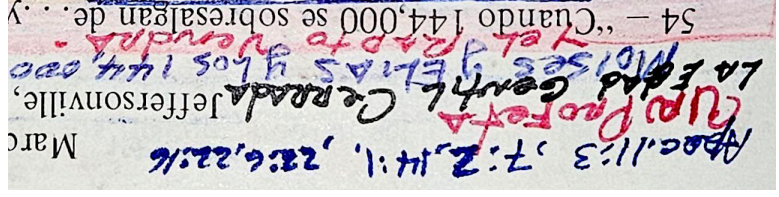 Apoc. 11:3, 7:2, 14:1, 22:6, 22:16 Marc
UN PROFETA
LA EDAD Gentil Cerrada Jeffersonville,
MOISES y ELIAS y LOS 144,000
Y EL RAPTO VENDRA.
54 – “Cuando 144,000 se sobresalgan de. . . y